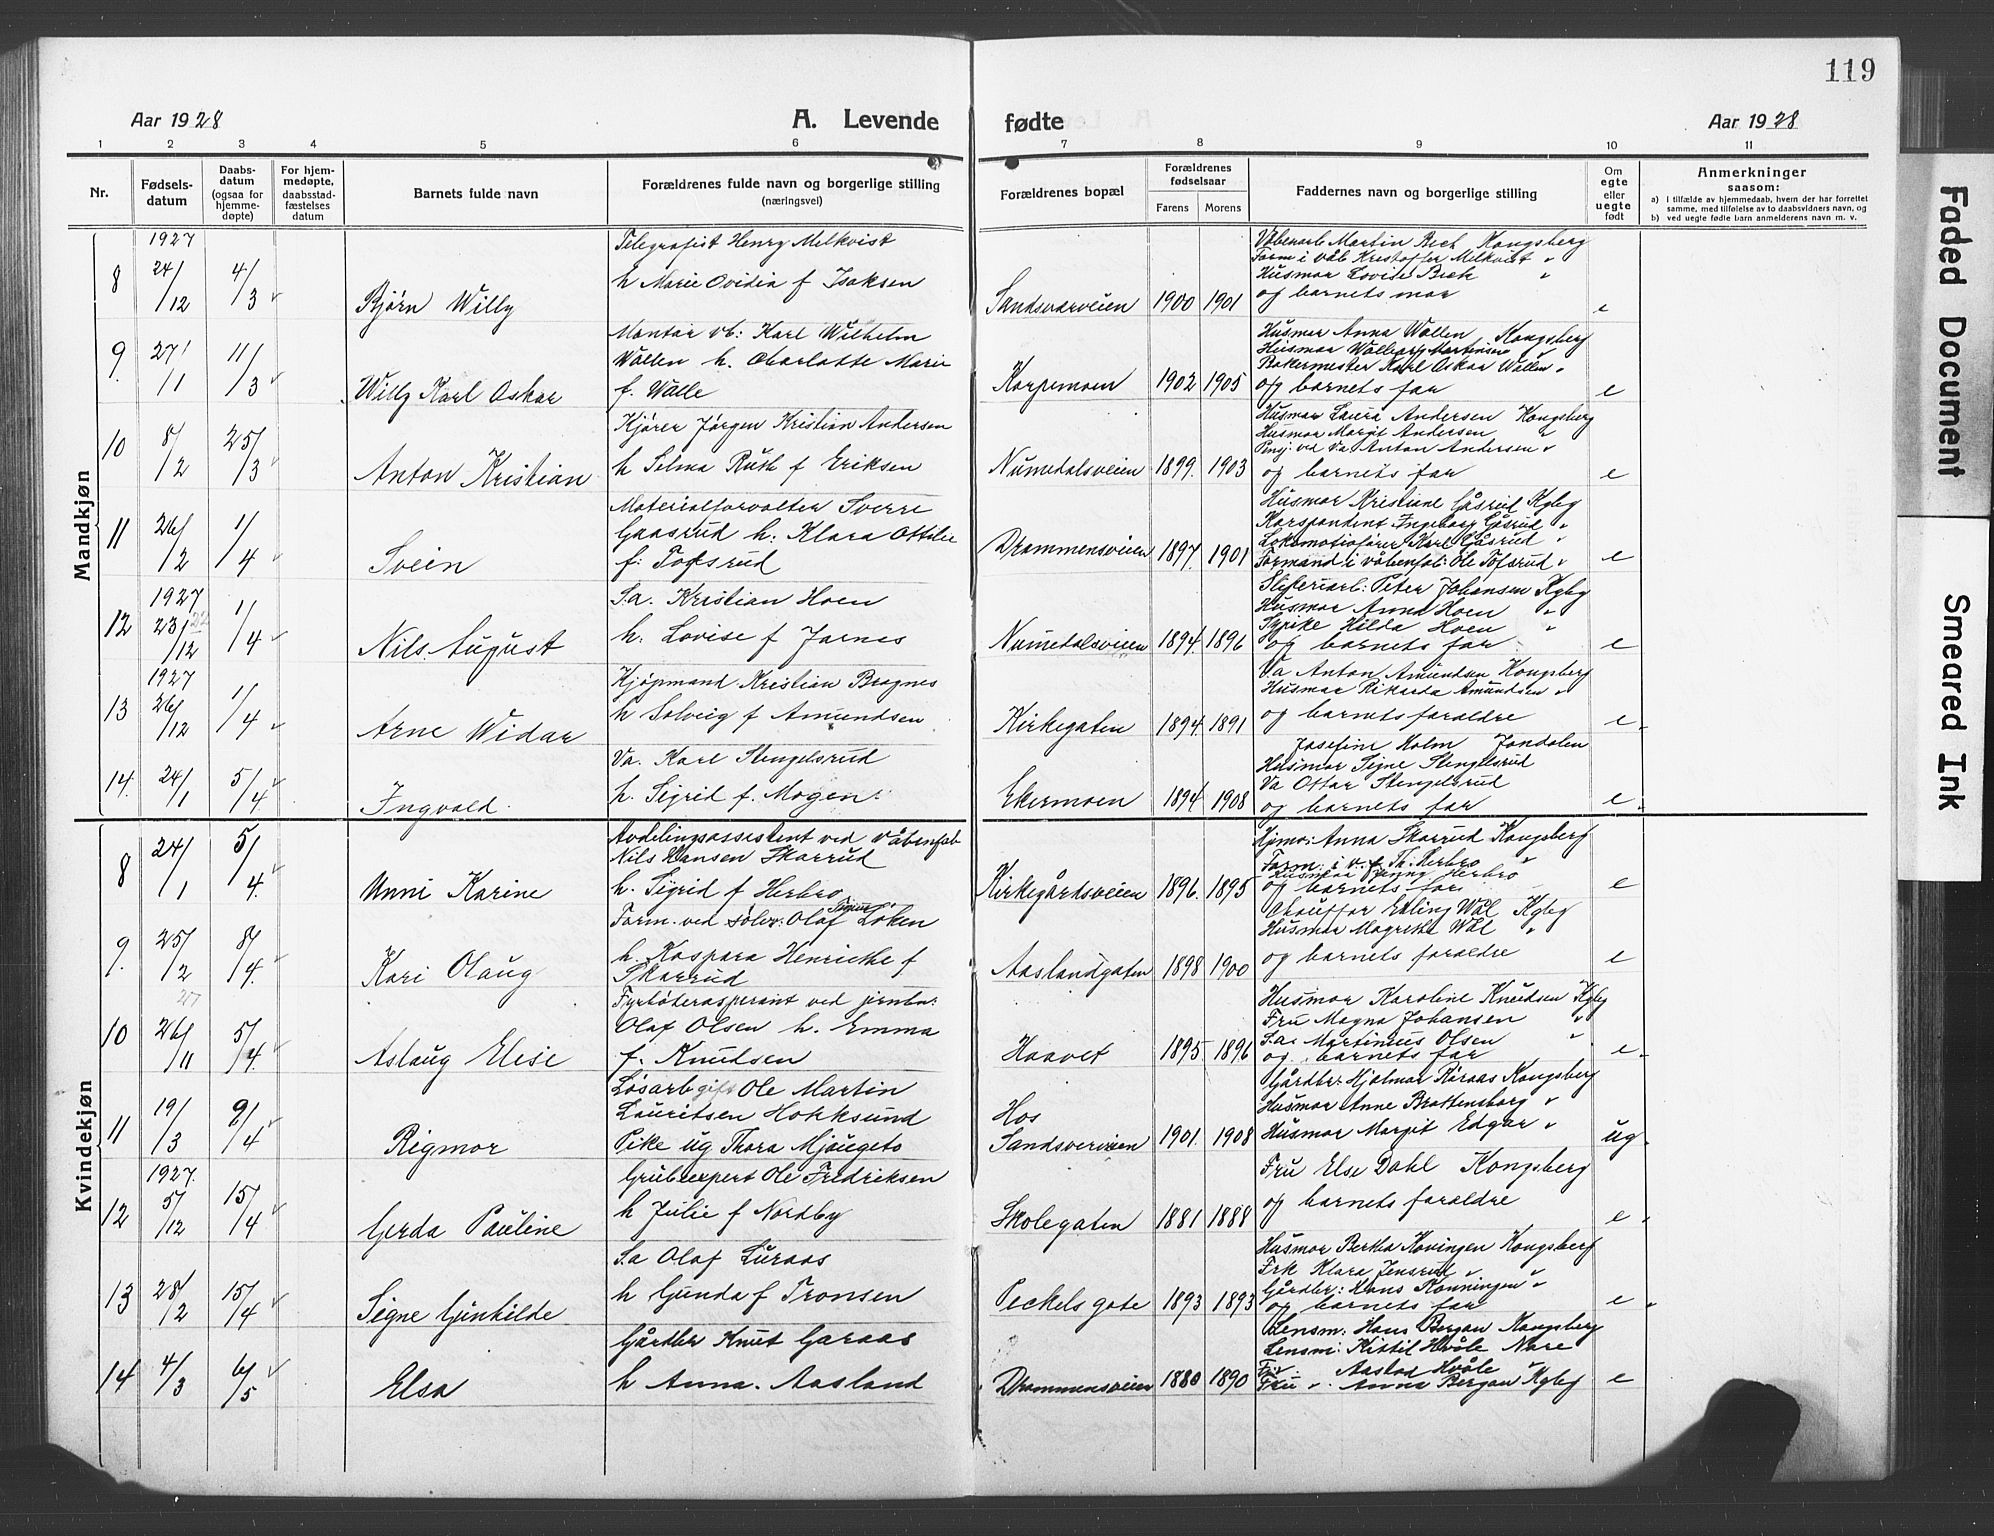 119
Aar 1928
A. Levende
fødte
Aar 1928
1 2 3 4 5 6 7 8 9 10 11
Nr.
Fødsels-
datum
Daabs-
datum
(ogsaa for
hjemme-
døpte)
For hjem-
medøpte,
daabsstad-
fæstelses
datum
Barnets fulde navn
Forældrenes fulde navn og borgerlige stilling
(næringsvei)
Forældrenes bopæl
Forældrenes
fødselsaar
Farens Morens
Faddernes navn og borgerlige stilling
Om
egte
eller
uegte
født
Anmerkninger
saasom:
a) i tilfælde av hjemmedaab, hvem der har forrettet
samme, med tilføielse av to daabsvidners navn, og
b) ved uegte fødte barn anmelderens navn m. v.
Mandkjøn
8
1927
24/12
4/3
Bjørn Willy
Telegrafist Henry Melkvist
h Marie Ovidia f Isaksen
Sandsværveien 1900 1901
Våbenarb Martin Bech Kongsberg
Form i våb Kristoffer Melkvist "
Husmor Lovise Bech "
og barnets mor
e
9
27/1
11/3
Willy Karl Oskar
Montør vb: Karl Wilhelm
Wallen h. Charlotte Marie
f. Walle
Korpemoen 1902 1905
Husmor Anna Wallen Kongsberg
Husmor Walborg Martinsen "
Bakermester Karl Oskar Wallen "
og barnets far
e
10
8/2
25/3
Anton Kristian
Kjører Jørgen Kristian Andersen
h Selma Ruth f Eriksen
Numedalsveien 1899 1903
Husmor Laura Andersen Kongsberg
Husmor Margit Andersen "
Pensj. ved Va Anton Andersen "
og barnets far
e
11
26/2
1/4
Svein
Materialforvalter Sverre
Gaasrud h: Klara Ottilie
f: Tofsrud
Drammensveien 1897 1901
Husmor Kristiane Gåsrud Kgbg
Korspondent Ingeborg Gåsrud "
Lokomotivfører Karl Gåsrud "
Formand i våbenfab: Ole Tofsrud "
e
12
1927
23/12
1/4
Nils August
Sa. Kristian Hoen
h: Lovise f Jarnes
Numedalsveien 1894 1896
Sliperiarb: Peter Johansen Kgbg
Husmor Anna Hoen "
Sypike Hilda Hoen "
og barnets far
e
13
1927
26/12
1/4
Arne Widar
Kjøpmand Kristian Bragnes
h Solveig f Amundsen
Kirkegaten 1894 1891
Va Anton Amundsen Kongsberg
Husmor Rikarda Amundsen "
og barnets foraldre
e
14
24/1
5/4
Ingvald
Va. Karl Stengelsrud
h. Sigrid f. Mogen
Ekermoen 1894 1908
Josefine Holm Jondalen
Husmor Signe Stengelsrud
Va Ottar Stengelsrud
og barnets far
e
Kvindekjøn
8
24/1
5/4
Unni Karine
Avdelingsassistent ved Våbenfab
Nils Hansen Skarrud
h. Sigrid f Herbro
Kirkegårdsveien 1896 1895
Hjmo: Anna Skarrud Kongsberg
Form: i v. f Th. Herbro "
Husmor Jenny Herbro
og barnets far
e
9
25/2
8/4
Kari Olaug
Form. ved sølv: Olaf Løken
h. Kaspara Henriette f
Skarrud
Aaslandgaten 1898 1900
Chauffør Erling Wål Kgbg
Husmor Magrethe Wål "
og barnets foraldre
e
10
26/11
5/4
Aslaug Elise
Fyrbøteraspirant ved jernbn:
Olaf Olsen h. Emma
f. Knudsen
Haavet 1895 1896
Husmor Karoline Knudsen Kgbg
Fru Magna Johansen "
Sa. Martinius Olsen "
og barnets far
e
11
19/3
9/4
Rigmor
Løsarb gift Ole Martin
Lauritsen Hokksund
Pike ug Thora Mjøugeto
Hos
Sandsverveien 1901 1908
Gårdbr: Hjalmar Røraas Kongsberg
Husmor Anne Brattensborg "
Husmor Margit Edgar "
ug
12
1927
5/12
15/4
Gerda Pauline
Grubeexpert Ole Fredriksen
h Julie f Nordby
Skolegaten 1881 1888
Fru Else Dahl Kongsberg
og barnets foraldre
e
13
28/2
15/4
Signe Gunhilde
Sa Olaf Luraas
h Gunda f Tronsen
Peckels gate 1893 1893
Husmor Bertha Kovingen Kongsberg
Frk Klara Jensrud "
Gårdbr: Hans Rønningen "
og barnets far
e
14
4/3
6/5
Elsa
Gårdbr Knut Garaas
h Anna. Aasland
Drammensveien 1880 1890
Lensm: Hans Bergan Kongsberg
Lensm: Kittil Hvåle Nore
Fru Aaslad Hvåle
Fru " Anna Bergan Kgbg
e
Faded Document
Smeared Ink